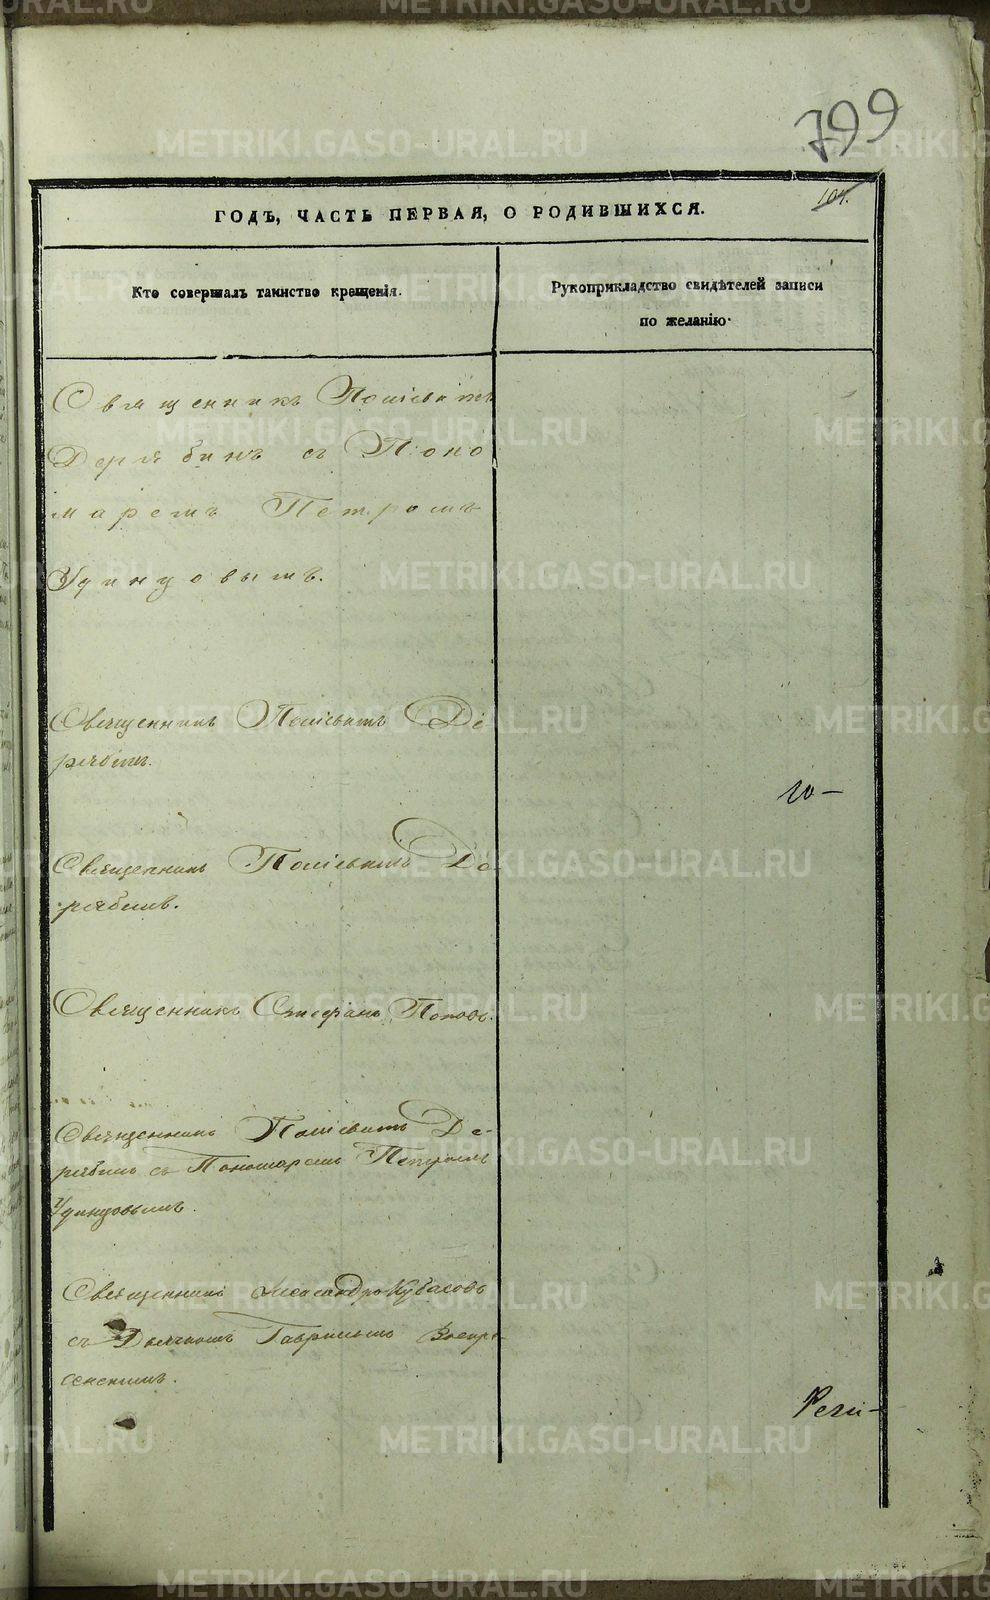 799
104.
ГОДЪ, ЧАСТЬ ПЕРВАЯ, О РОДИВШИХСЯ.
Кто совершалъ таинство крещенія.
Рукоприкладство свидѣтелей записи
по желанію.
Священникъ Полієвктъ
Дерябинъ съ Поно
маремъ Петромъ
Удинцовымъ.
Священникъ Полієвктъ Де
рябинъ.
Священникъ Полієвктъ Де
рябинъ.
Священникъ Стефанъ Поповъ.
Священникъ Полієвктъ Де-
рябинъ съ Пономаремъ Петромъ
Удинцовымъ.
Священникъ Александръ Кубасовъ
съ Дьячкомъ Гавриломъ Воскре-
сенскимъ.
METRIKI.GASO-URAL.RU